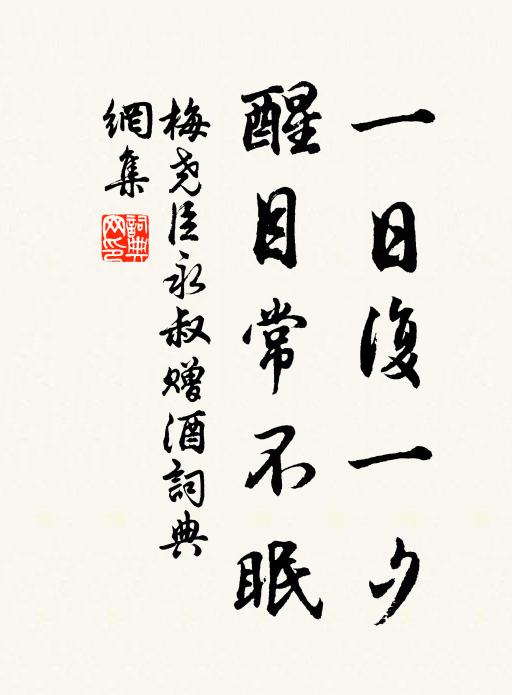 一日復一夕
醒目常不眠
梅堯臣永叔赠酒詞典
網集
詞典
网印